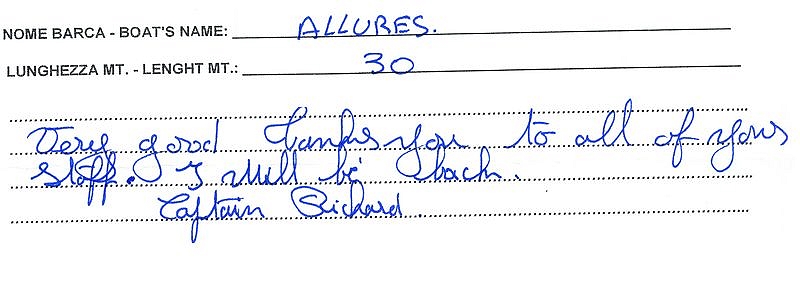 NOME BARCA - BOAT'S NAME: ALLURES.
LUNGHEZZA MT. - LENGHT MT.: 30
Very good Tanks you to all of yous
Staff. I will be back.
Captain Richard.